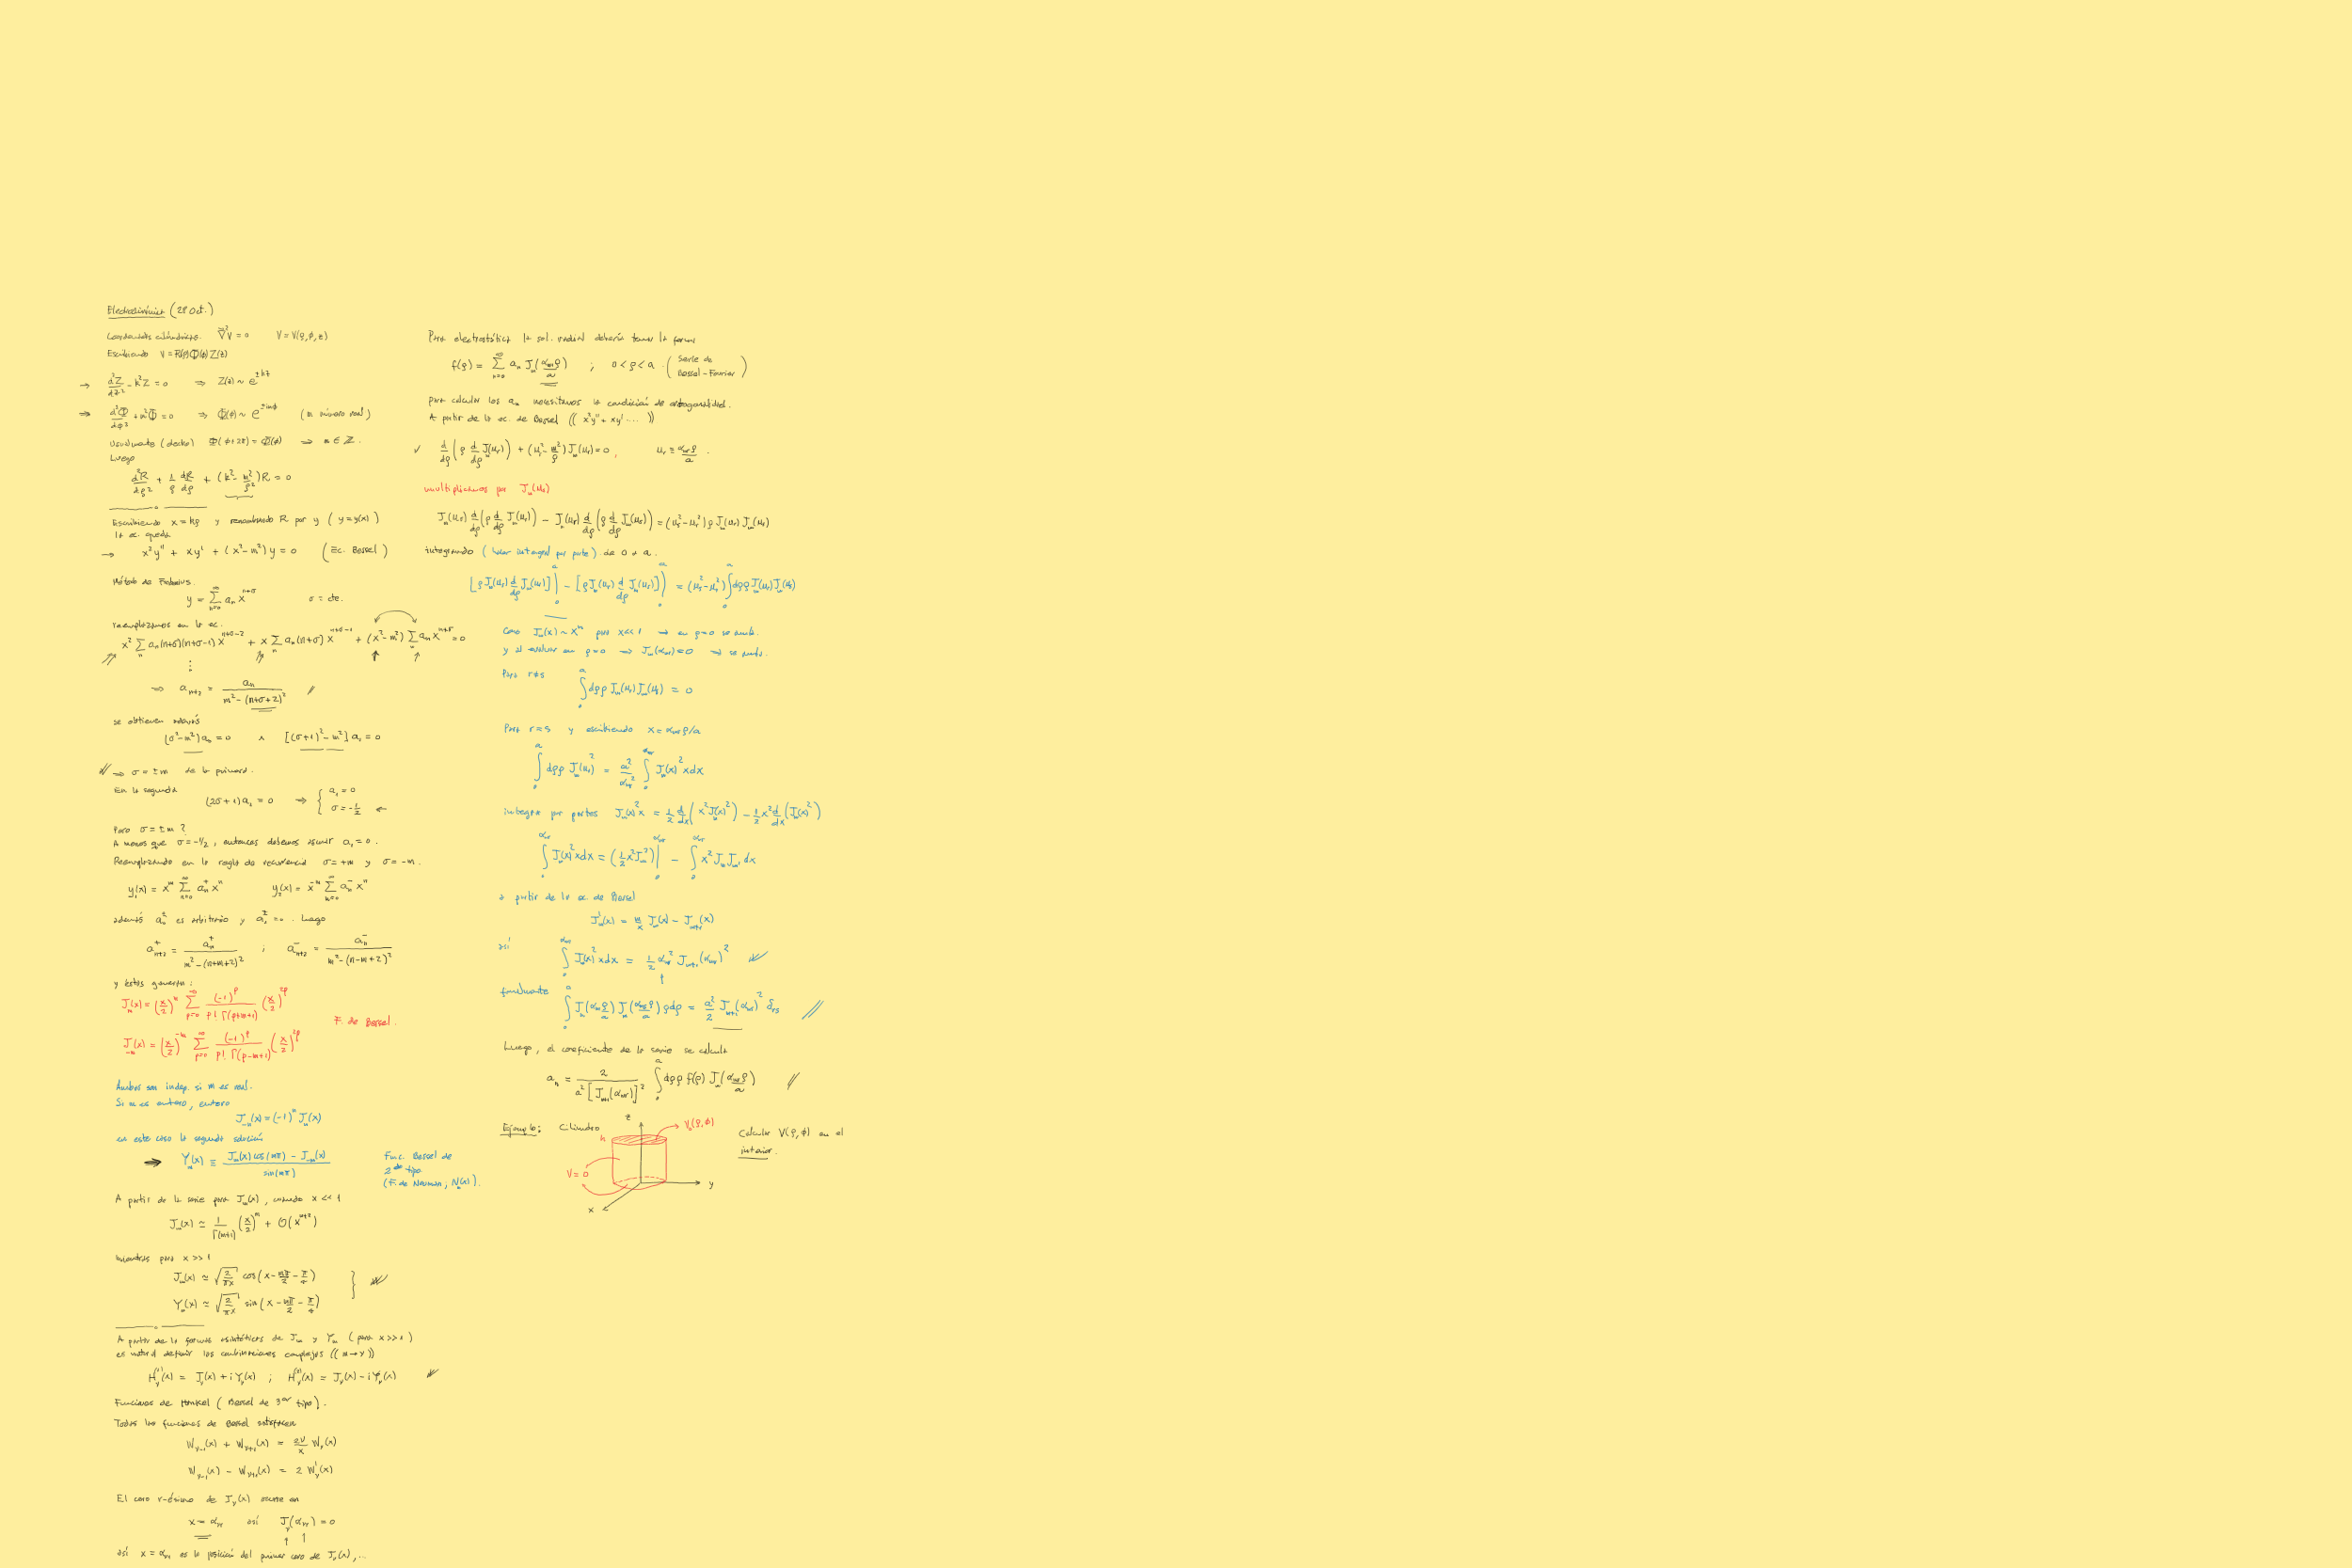 Electrodinámica (28 Oct.)
Coordenadas cilíndricas. ∇²V = 0    V = V(ρ,φ,z)
Escribiendo V = R(ρ)Φ(φ)Z(z)
→ d²Z/dz² - k²Z = 0 ⇒ Z(z) ~ e^{±kz}
⇒ d²Φ/dφ² + m²Φ = 0 ⇒ Φ(φ) ~ e^{±imφ} (m número real)
Usualmente (destro) Φ(φ+2π) = Φ(φ) ⇒ m ∈ ℤ.
Luego
d²R/dρ² + 1/ρ dR/dρ + (k² - m²/ρ²)R = 0
Escribiendo x = kρ y renombrando R por y (y = y(x))
la ec. queda
→ x²y'' + xy' + (x² - m²)y = 0 (Ec. Bessel)
Método de Frobenius.
y = Σ_{n=0}^∞ a_n x^{n+σ}    σ = cte.
reemplazamos en la ec.
x² Σ_n a_n(n+σ)(n+σ-1)x^{n+σ-2} + x Σ_n a_n(n+σ)x^{n+σ-1} + (x² - m²) Σ_n a_n x^{n+σ} = 0
⋮
⇒ a_{n+2} = a_n / (m² - (n+σ+2)²) //
se obtienen además
(σ² - m²)a_0 = 0 ∧ [(σ+1)² - m²]a_1 = 0
⇒ σ = ±m de la primera.
En la segunda
(2σ+1)a_1 = 0 ⇒ { a_1 = 0
σ = -1/2 ←
Para σ = ±m ?
A menos que σ = -1/2, entonces debemos asumir a_1 = 0.
Reemplazando en la regla de recurrencia σ = +m y σ = -m.
y_1(x) = x^m Σ_{n=0}^∞ a_n^+ x^n    y_2(x) = x^{-m} Σ_{n=0}^∞ a_n^- x^n
además a_0^± es arbitrario y a_1^± = 0. Luego
a_{n+2}^+ = a_n^+ / (m² - (n+m+2)²) ; a_{n+2}^- = a_n^- / (m² - (n-m+2)²)
y éstas generan:
J_m(x) = (x/2)^m Σ_{p=0}^∞ (-1)^p / (p! Γ(p+m+1)) (x/2)^{2p}
F. de Bessel.
J_{-m}(x) = (x/2)^{-m} Σ_{p=0}^∞ (-1)^p / (p! Γ(p-m+1)) (x/2)^{2p}
Ambas son indep. si m es real.
Si m es entero, entonces
J_{-m}(x) = (-1)^m J_m(x)
en este caso la segunda solución
→ Y_m(x) ≡ (J_m(x) cos(mπ) - J_{-m}(x)) / sin(mπ)
Func. Bessel de
2do tipo
(F. de Neumann, N_m(x)).
A partir de la serie para J_m(x), cuando x << 1
J_m(x) ≃ 1/Γ(m+1) (x/2)^m + O(x^{m+2})
mientras para x >> 1
J_m(x) ≃ √(2/πx) cos(x - mπ/2 - π/4)
Y_m(x) ≃ √(2/πx) sin(x - mπ/2 - π/4)
A partir de la formas asintóticas de J_m y Y_m (para x >> 1)
es natural definir las combinaciones complejas ((m → ν))
H_ν^{(1)}(x) = J_ν(x) + iY_ν(x) ; H_ν^{(2)}(x) = J_ν(x) - iY_ν(x)
Funciones de Hankel (Bessel de 3er tipo).
Todas las funciones de Bessel satisfacen
W_{ν-1}(x) + W_{ν+1}(x) = 2ν/x W_ν(x)
W_{ν-1}(x) - W_{ν+1}(x) = 2 W'_ν(x)
El cero r-ésimo de J_ν(x) ocurre en
x = α_{νr} así J_ν(α_{νr}) = 0
así x = α_{ν1} es la posición del primer cero de J_ν(x), ...
Para electrostática la sol. radial debería tener la forma
f(ρ) = Σ_{n=0}^∞ a_n J_m(α_{mn}ρ/a) ; 0 < ρ < a. (Serie de
Bessel-Fourier)
para calcular los a_n necesitamos la condición de ortogonalidad.
A partir de la ec. de Bessel ((x²y'' + xy' ....))
✓ d/dρ (ρ d/dρ J_m(u_r)) + (u_r² - m²/ρ) J_m(u_r) = 0, u_r ≡ α_{mr}ρ/a .
multiplicamos por J_m(u_s)
J_m(u_s) d/dρ (ρ d/dρ J_m(u_r)) - J_m(u_r) d/dρ (ρ d/dρ J_m(u_s)) = (u_s² - u_r²) ρ J_m(u_r) J_m(u_s)
integrando (hacer integral por parte). de 0 a a.
[ρ J_m(u_s) d/dρ J_m(u_r)]|_0^a - [ρ J_m(u_r) d/dρ J_m(u_s)]|_0^a = (u_s² - u_r²) ∫_0^a dρ ρ J_m(u_r) J_m(u_s)
Como J_m(x) ~ x^m para x << 1 → en ρ = 0 se anula.
y al evaluar en ρ = 0 → J_m(α_{mr}) = 0 → se anula.
Para r ≠ s ∫_0^a dρ ρ J_m(u_r) J_m(u_s) = 0
Para r = s y escribiendo x = α_{mr} ρ/a
∫_0^a dρ ρ J_m(u_r)² = a²/α_{mr}² ∫_0^{α_{mr}} J_m(x)² x dx
integrar por partes J_m(x)² x = 1/2 d/dx (x² J_m(x)²) - 1/2 x² d/dx (J_m(x)²)
∫_0^{α_{mr}} J_m(x)² x dx = (1/2 x² J_m²)|_0^{α_{mr}} - ∫_0^{α_{mr}} x² J_m J_m' dx
a partir de la ec. de Bessel
J'_m(x) = m/x J_m(x) - J_{m+1}(x)
así ∫_0^{α_{mr}} J_m(x)² x dx = 1/2 α_{mr}² J_{m+1}(α_{mr})²
finalmente ∫_0^a J_m(α_{mr}ρ/a) J_m(α_{ms}ρ/a) ρ dρ = a²/2 J_{m+1}(α_{mr})² δ_{rs} //
Luego, el coeficiente de la serie se calcula
a_n = 2 / (a² [J_{m+1}(α_{mr})]²) ∫_0^a dρ ρ f(ρ) J_m(α_{mr}ρ/a) //
Ejemplo: Cilindro
z
h
V_0(ρ,φ)
V = 0
y
x
Calcular V(ρ,φ) en el
interior.